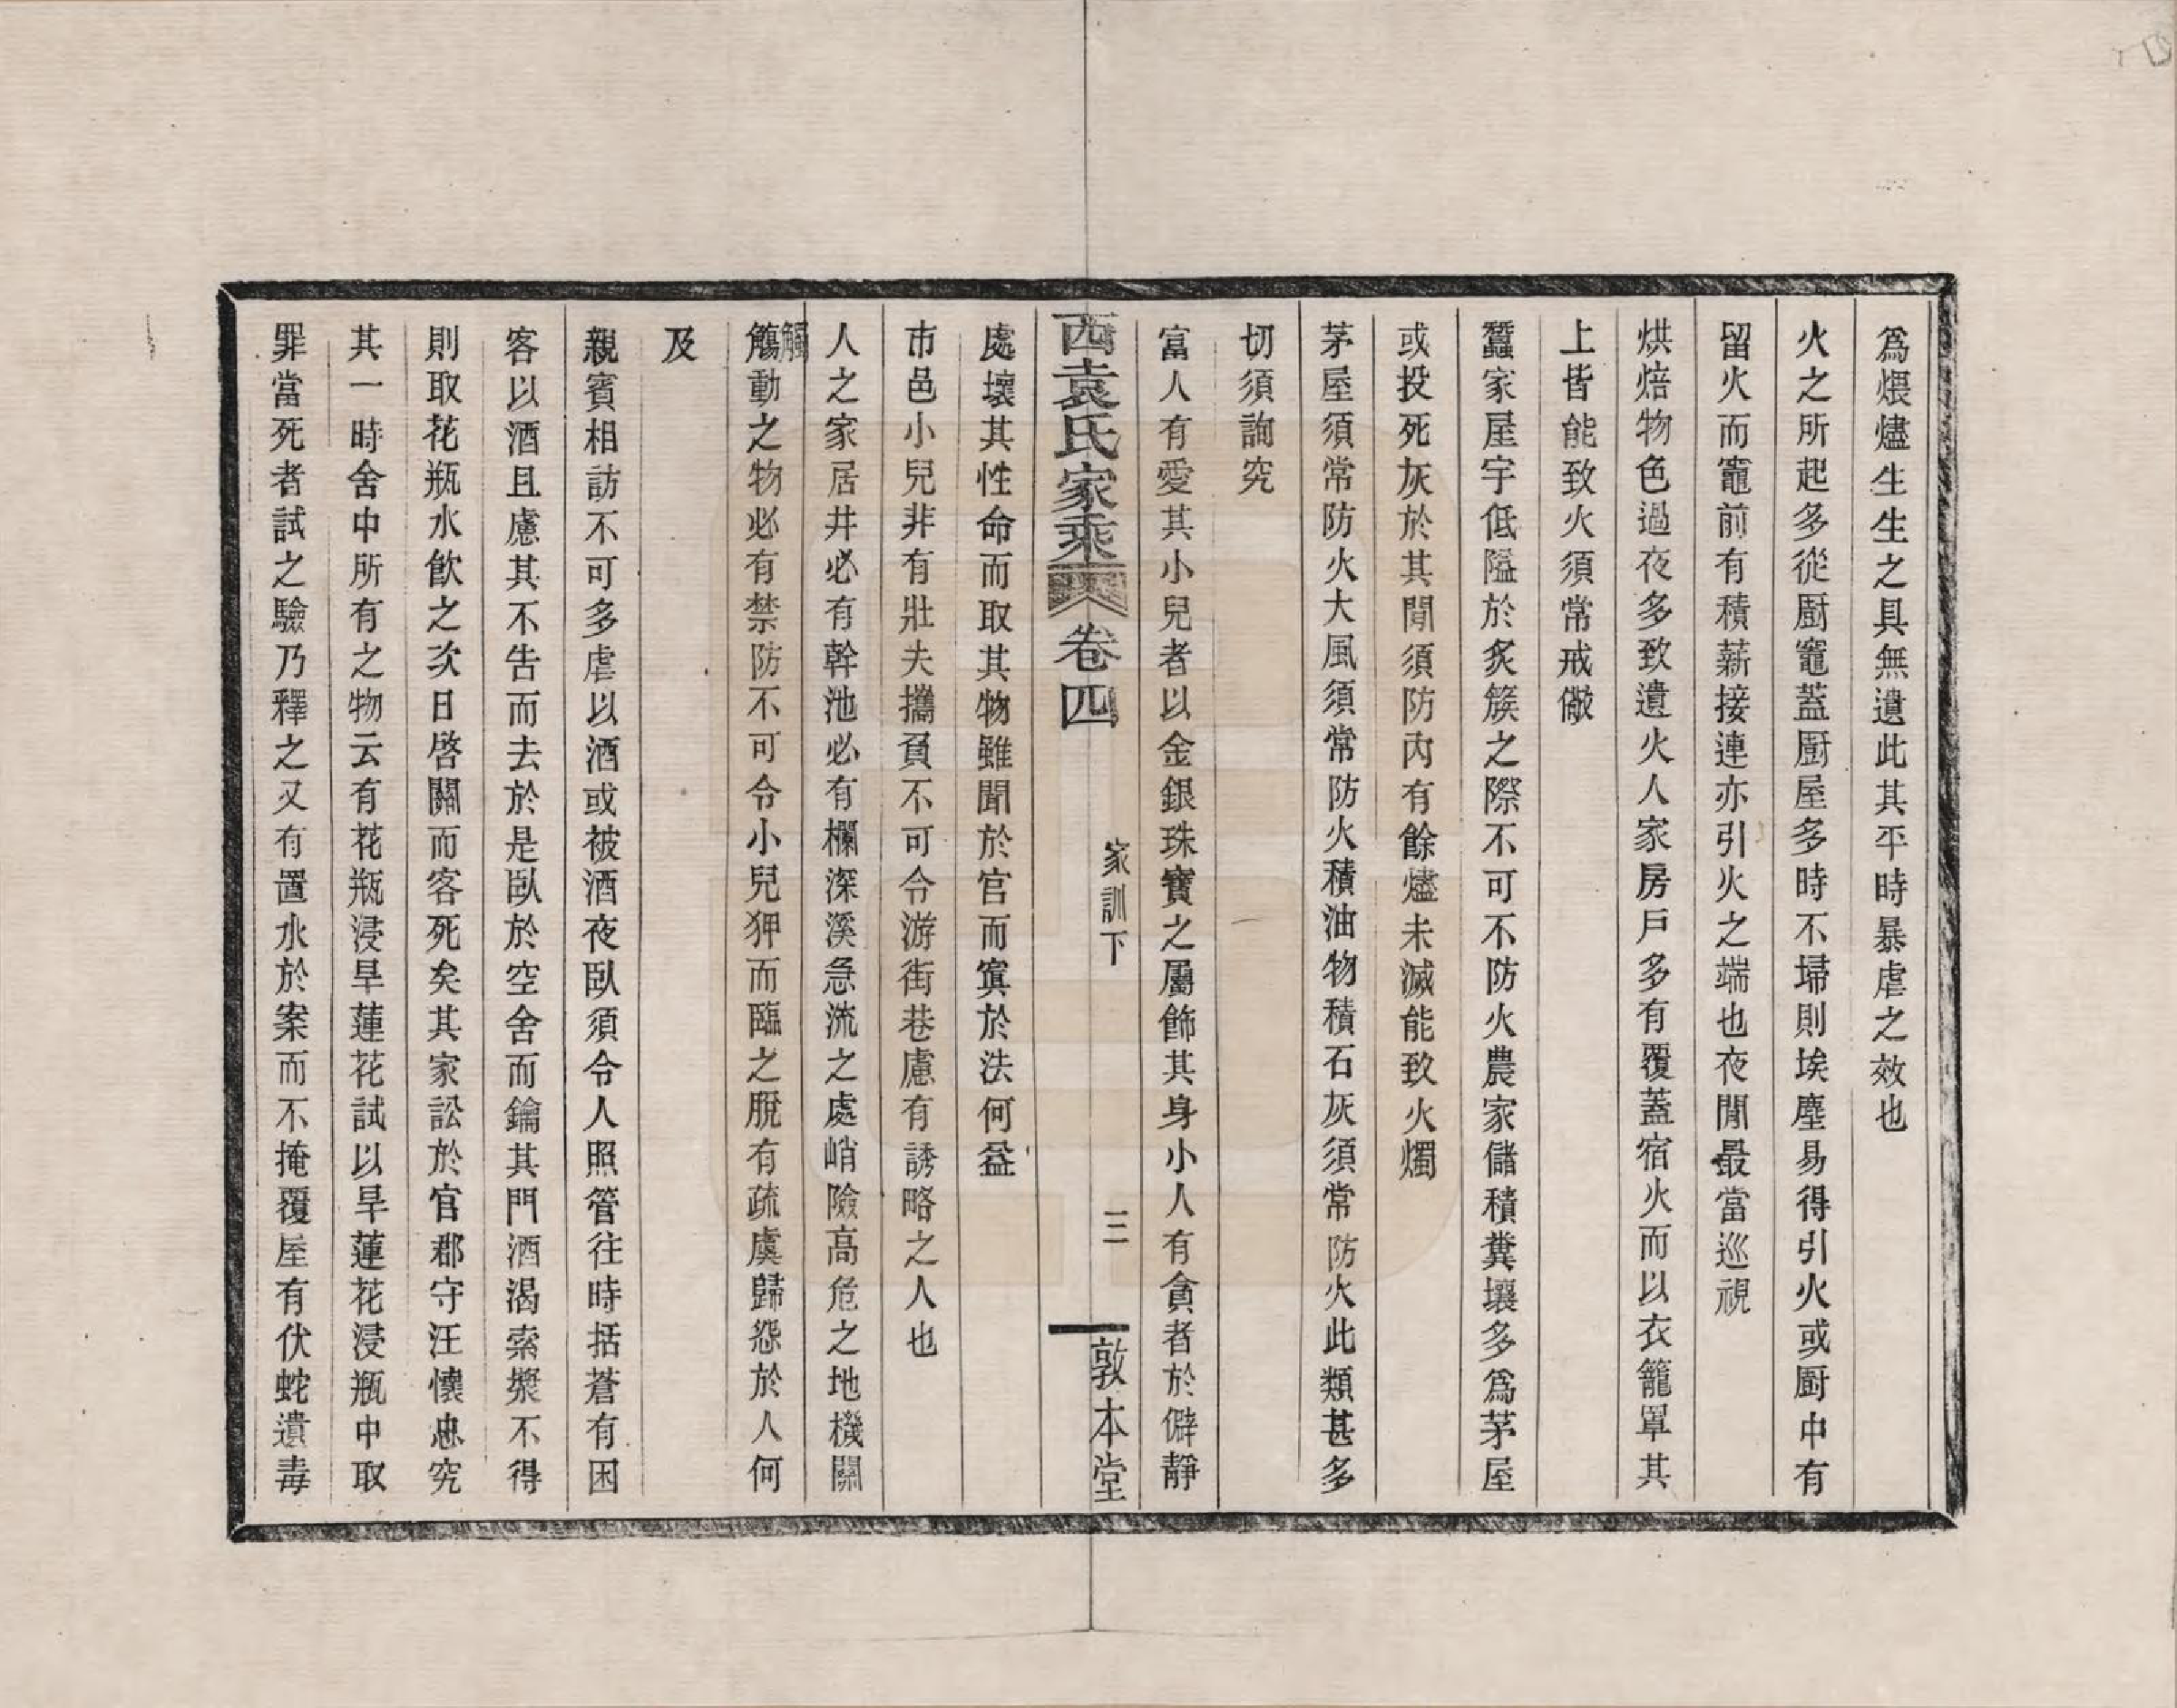 爲煨燼生生之具無遺此其平時暴虐之效也
火之所起多從厨竈蓋厨屋多時不埽則埃塵易得引火或厨中有
留火而竈前有積薪接連亦引火之端也夜閒最當巡視
烘焙物色過夜多致遺火人家房戶多有覆蓋宿火而以衣籠罩其
上皆能致火須常戒儆
蠶家屋宇低隘於炙簇之際不可不防火農家儲積糞壤多爲茅屋
或投死灰於其閒須防內有餘燼未滅能致火燭
茅屋須常防火大風須常防火積油物積石灰須常防火此類甚多
切須詢究
富人有愛其小兒者以金銀珠寶之屬飾其身小人有貪者於僻靜
西袁氏家乘
卷四
家訓下
三
敦本堂
處壞其性命而取其物雖聞於官而寘於法何益
市邑小兒非有壯夫攜負不可令游街巷慮有誘略之人也
人之家居井必有幹池必有欄深溪急流之處峭險高危之地機關
觸
觴動之物必有禁防不可令小兒狎而臨之脫有疏虞歸怨於人何
及
親賓相訪不可多虐以酒或被酒夜臥須令人照管往時括蒼有困
客以酒且慮其不告而去於是臥於空舍而鑰其門酒渴索漿不得
則取花瓶水飮之次日啓關而客死矣其家訟於官郡守汪懷忠究
其一時舍中所有之物云有花瓶浸旱蓮花試以旱蓮花浸瓶中取
罪當死者試之驗乃釋之又有置水於案而不掩覆屋有伏蛇遺毒